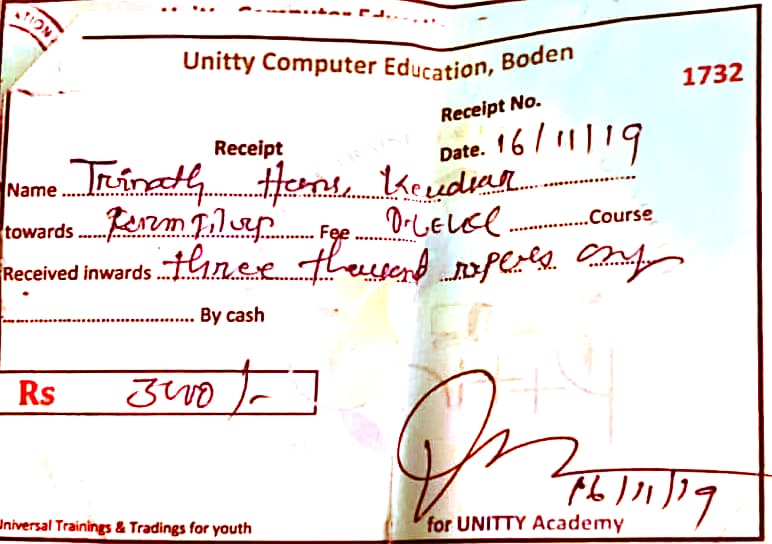 Unitty Computer Education, Boden
1732
Receipt No.
Receipt
Date. 16/11/19
Name Trinath Hans, Kendsar
towards Form Filup Fee O-LEVEL Course
Received inwards three thousand rupees only
By cash
Rs 3000/-
16/11/19
Universal Trainings & Tradings for youth
for UNITTY Academy